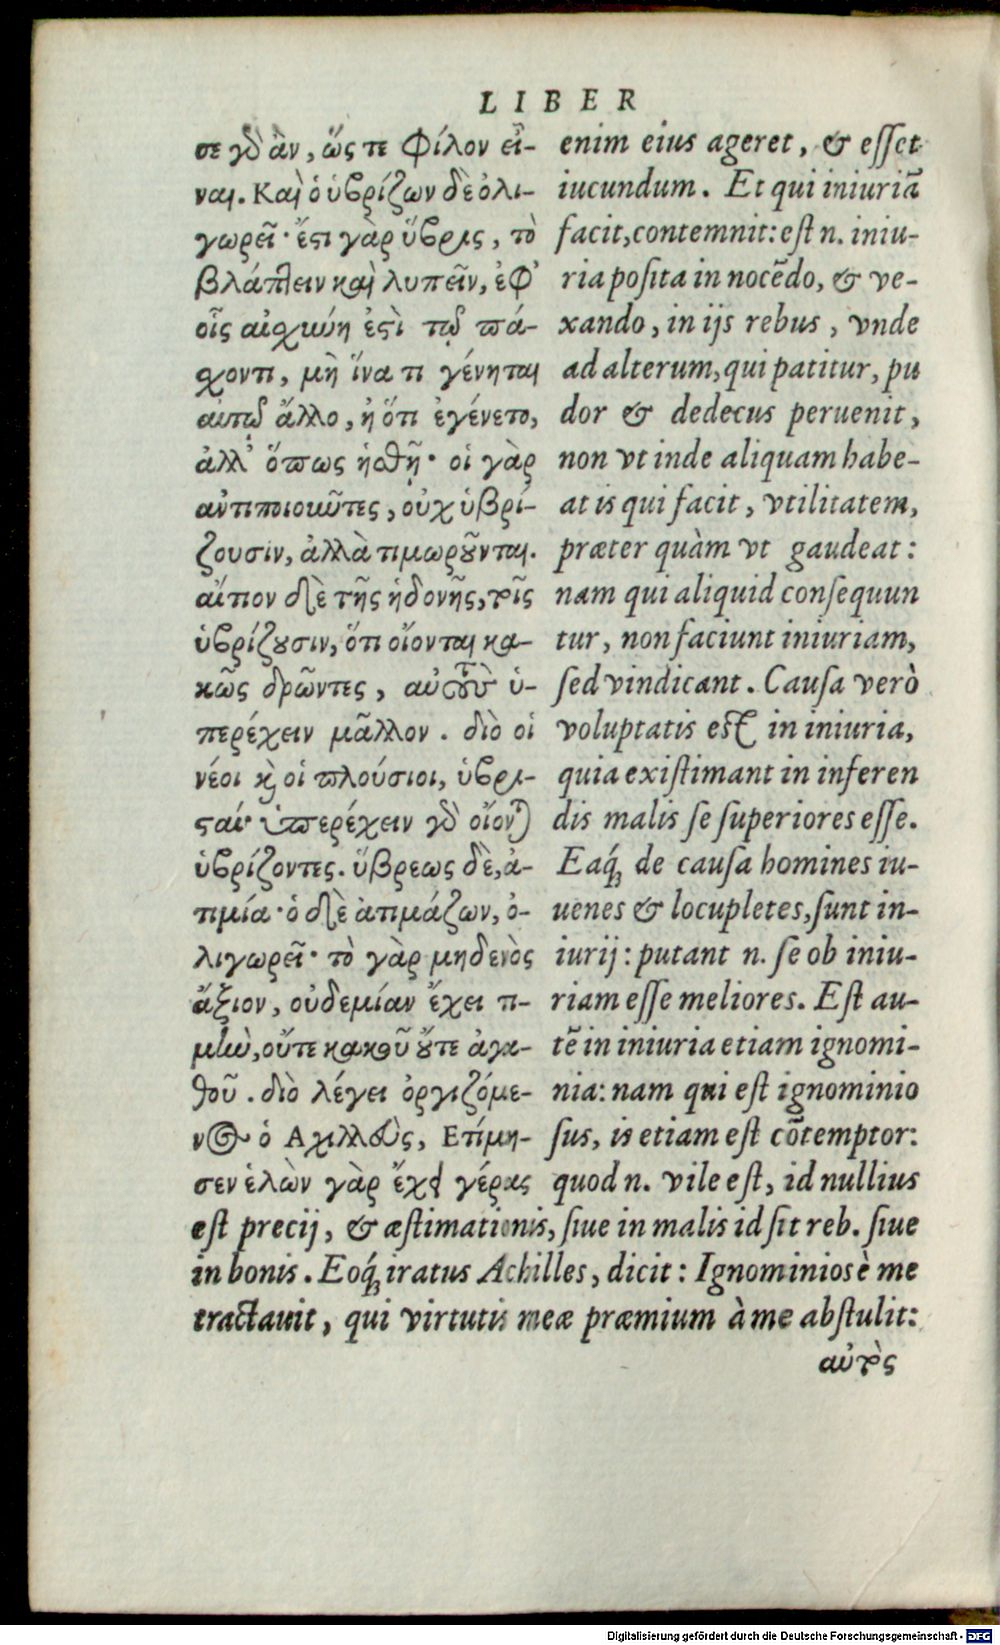 LIBER
σε γὸ ἂν, ὥςτε φίλον εἶ-
ναι. Καὶ ὁ ὑβρίζων δὲ ὀλι-
γωρεῖ· ἔςι γὰρ ὕβρις, τὸ
βλάπτειν καὶ λυπεῖν, ἐφ’
οἷς αἰχύνη ἐςὶ τῷ πά-
χοντι, μὴ ἵνα τι γένηται
αὐτῷ ἄλλο, ἢ ὅτι ἐγένετο,
ἀλλ’ ὅπως ἡσθῇ· οἱ γὰρ
ἀντιποιοιῶτες, οὐχ ὑβρί-
ζουσιν, ἀλλὰ τιμωροῦνται.
αἴτιον δὲ τῆς ἡδονῆς, τοῖς
ὑβρίζουσιν, ὅτι οἴονται κα-
κῶς δρῶντες, αὐτοὺς ὑ-
περέχειν μᾶλλον. διὸ οἱ
νέοι κὶ οἱ πλούσιοι, ὑβρι-
ςαί· ὑπερέχειν γὸ οἴονται
ὑβρίζοντες. ὕβρεως δὲ, ἀ-
τιμία· ὁ δὲ ἀτιμάζων, ὀ-
λιγωρεῖ· τὸ γὰρ μηδενὸς
ἄξιον, οὐδεμίαν ἔχει τι-
μὴν, οὔτε κακοῦ οὔτε ἀγα-
θοῦ. διὸ λέγει ὀργιζόμε-
νος ὁ Αχιλλεὺς, Ετίμη-
σεν ἑλὼν γὰρ ἔχει γέρας
enim eius ageret, & esset
iucundum. Et qui iniuriā
facit, contemnit: est n. iniu-
ria posita in nocēdo, & ve-
xando, in ijs rebus, vnde
ad alterum, qui patitur, pu
dor & dedecus peruenit,
non vt inde aliquam habe-
at is qui facit, vtilitatem,
præter quàm vt gaudeat:
nam qui aliquid consequun
tur, non faciunt iniuriam,
sed vindicant. Causa verò
voluptatis est in iniuria,
quia existimant in inferen
dis malis se superiores esse.
Eaq́; de causa homines iu-
uenes & locupletes, sunt in-
iurij: putant n. se ob iniu-
riam esse meliores. Est au-
tē in iniuria etiam ignomi-
nia: nam qui est ignominio
sus, is etiam est cōtemptor:
quod n. vile est, id nullius
est precij, & æstimationis, siue in malis id sit reb. siue
in bonis. Eoq́; iratus Achilles, dicit: Ignominiosè me
tractauit, qui virtutis meæ præmium à me abstulit:
αὐτὸς
Digitalisierung gefördert durch die Deutsche Forschungsgemeinschaft - DFG